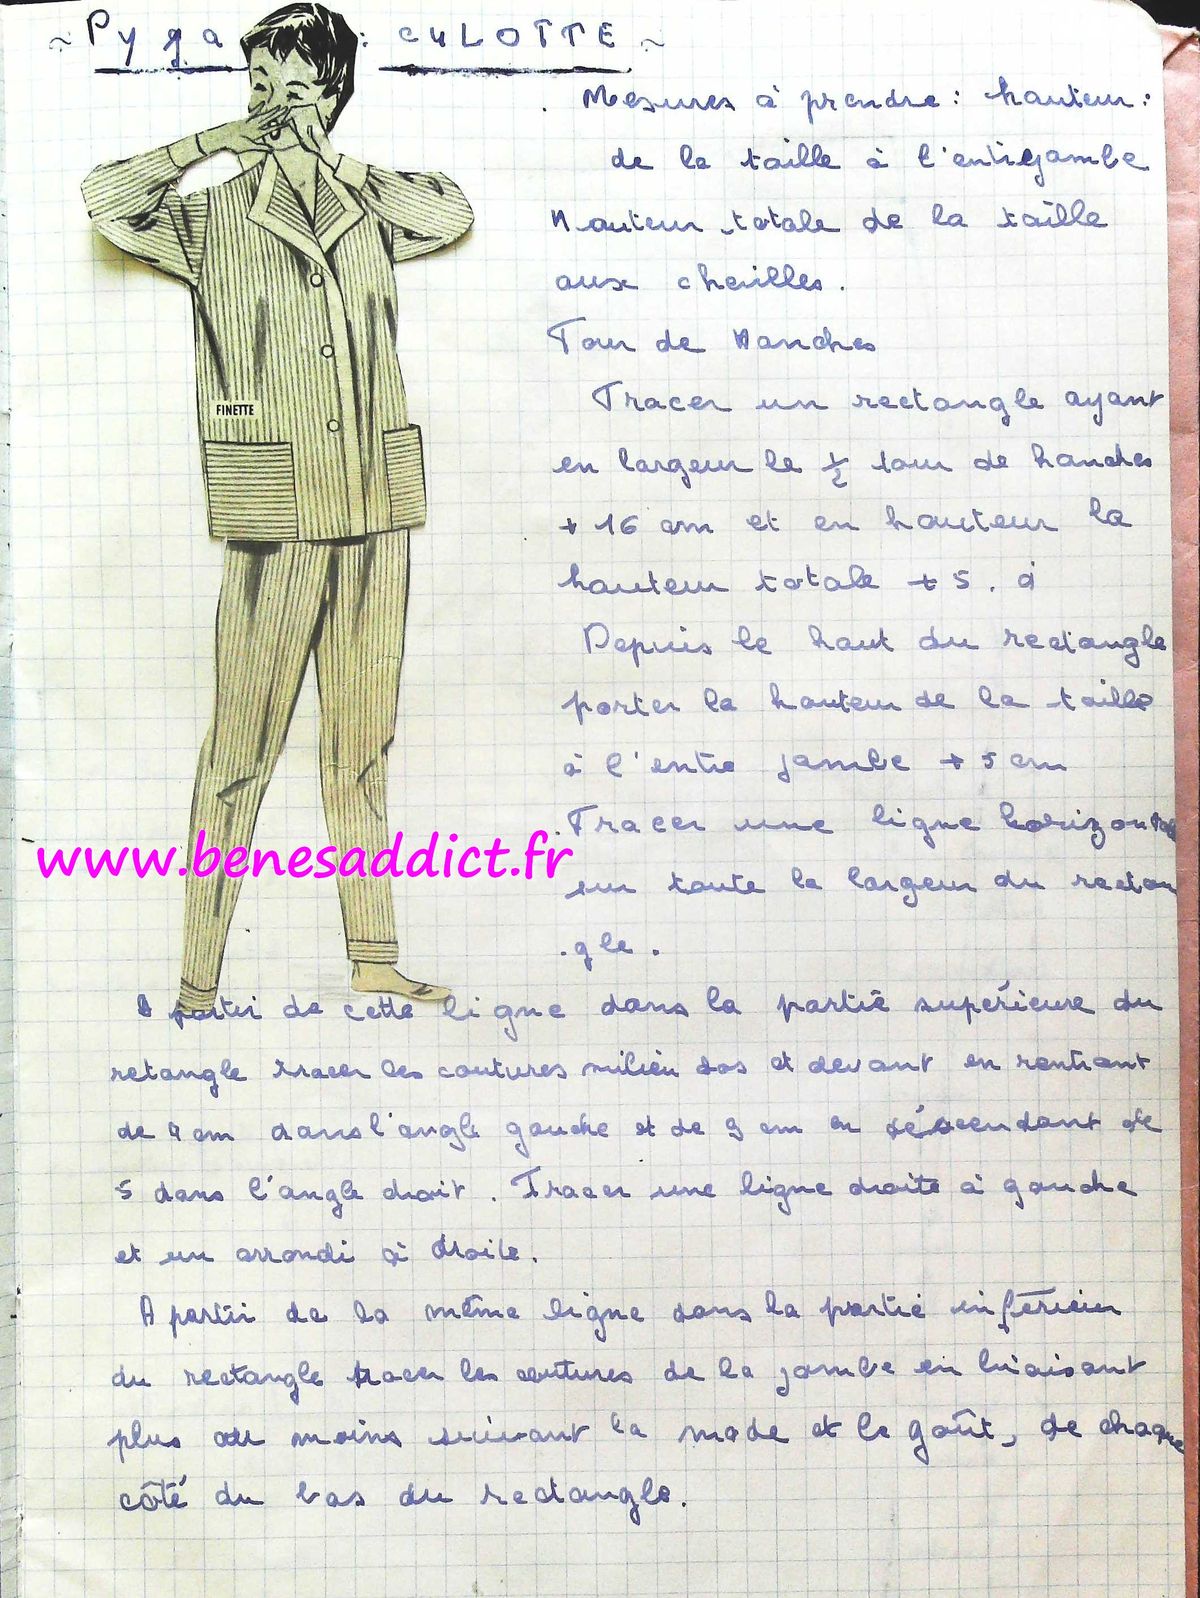 ~ Pyja : CULOTTE ~
. Mesures à prendre : hauteur :
de la taille à l'entrejambe
Hauteur totale de la taille
aux cheilles.
Tour de Hanches
Tracer un rectangle ayant
en largeur le 1/2 tour de hanches
+ 16 cm et en hauteur la
hauteur totale + 5. à
Depuis le haut du rectangle
porter la hauteur de la taille
à l'entre jambe + 5 cm
. Tracer une ligne horizontale
sur toute la largeur du rectan
. gle.
FINETTE
www.benesaddict.fr
A partir de cette ligne dans la partie supérieure du
retangle tracer les coutures milieu dos et devant en rentrant
de 4 cm dans l'angle gauche et de 9 cm en déscendant de
5 dans l'angle droit. Tracer une ligne droite à gauche
et un arrondi à droite.
A partir de la même ligne dans la partie inférieur
du rectangle tracer les coutures de la jambe en biaisant
plus ou moins suivant la mode et le goût, de chaque
côté du bas du rectangle.